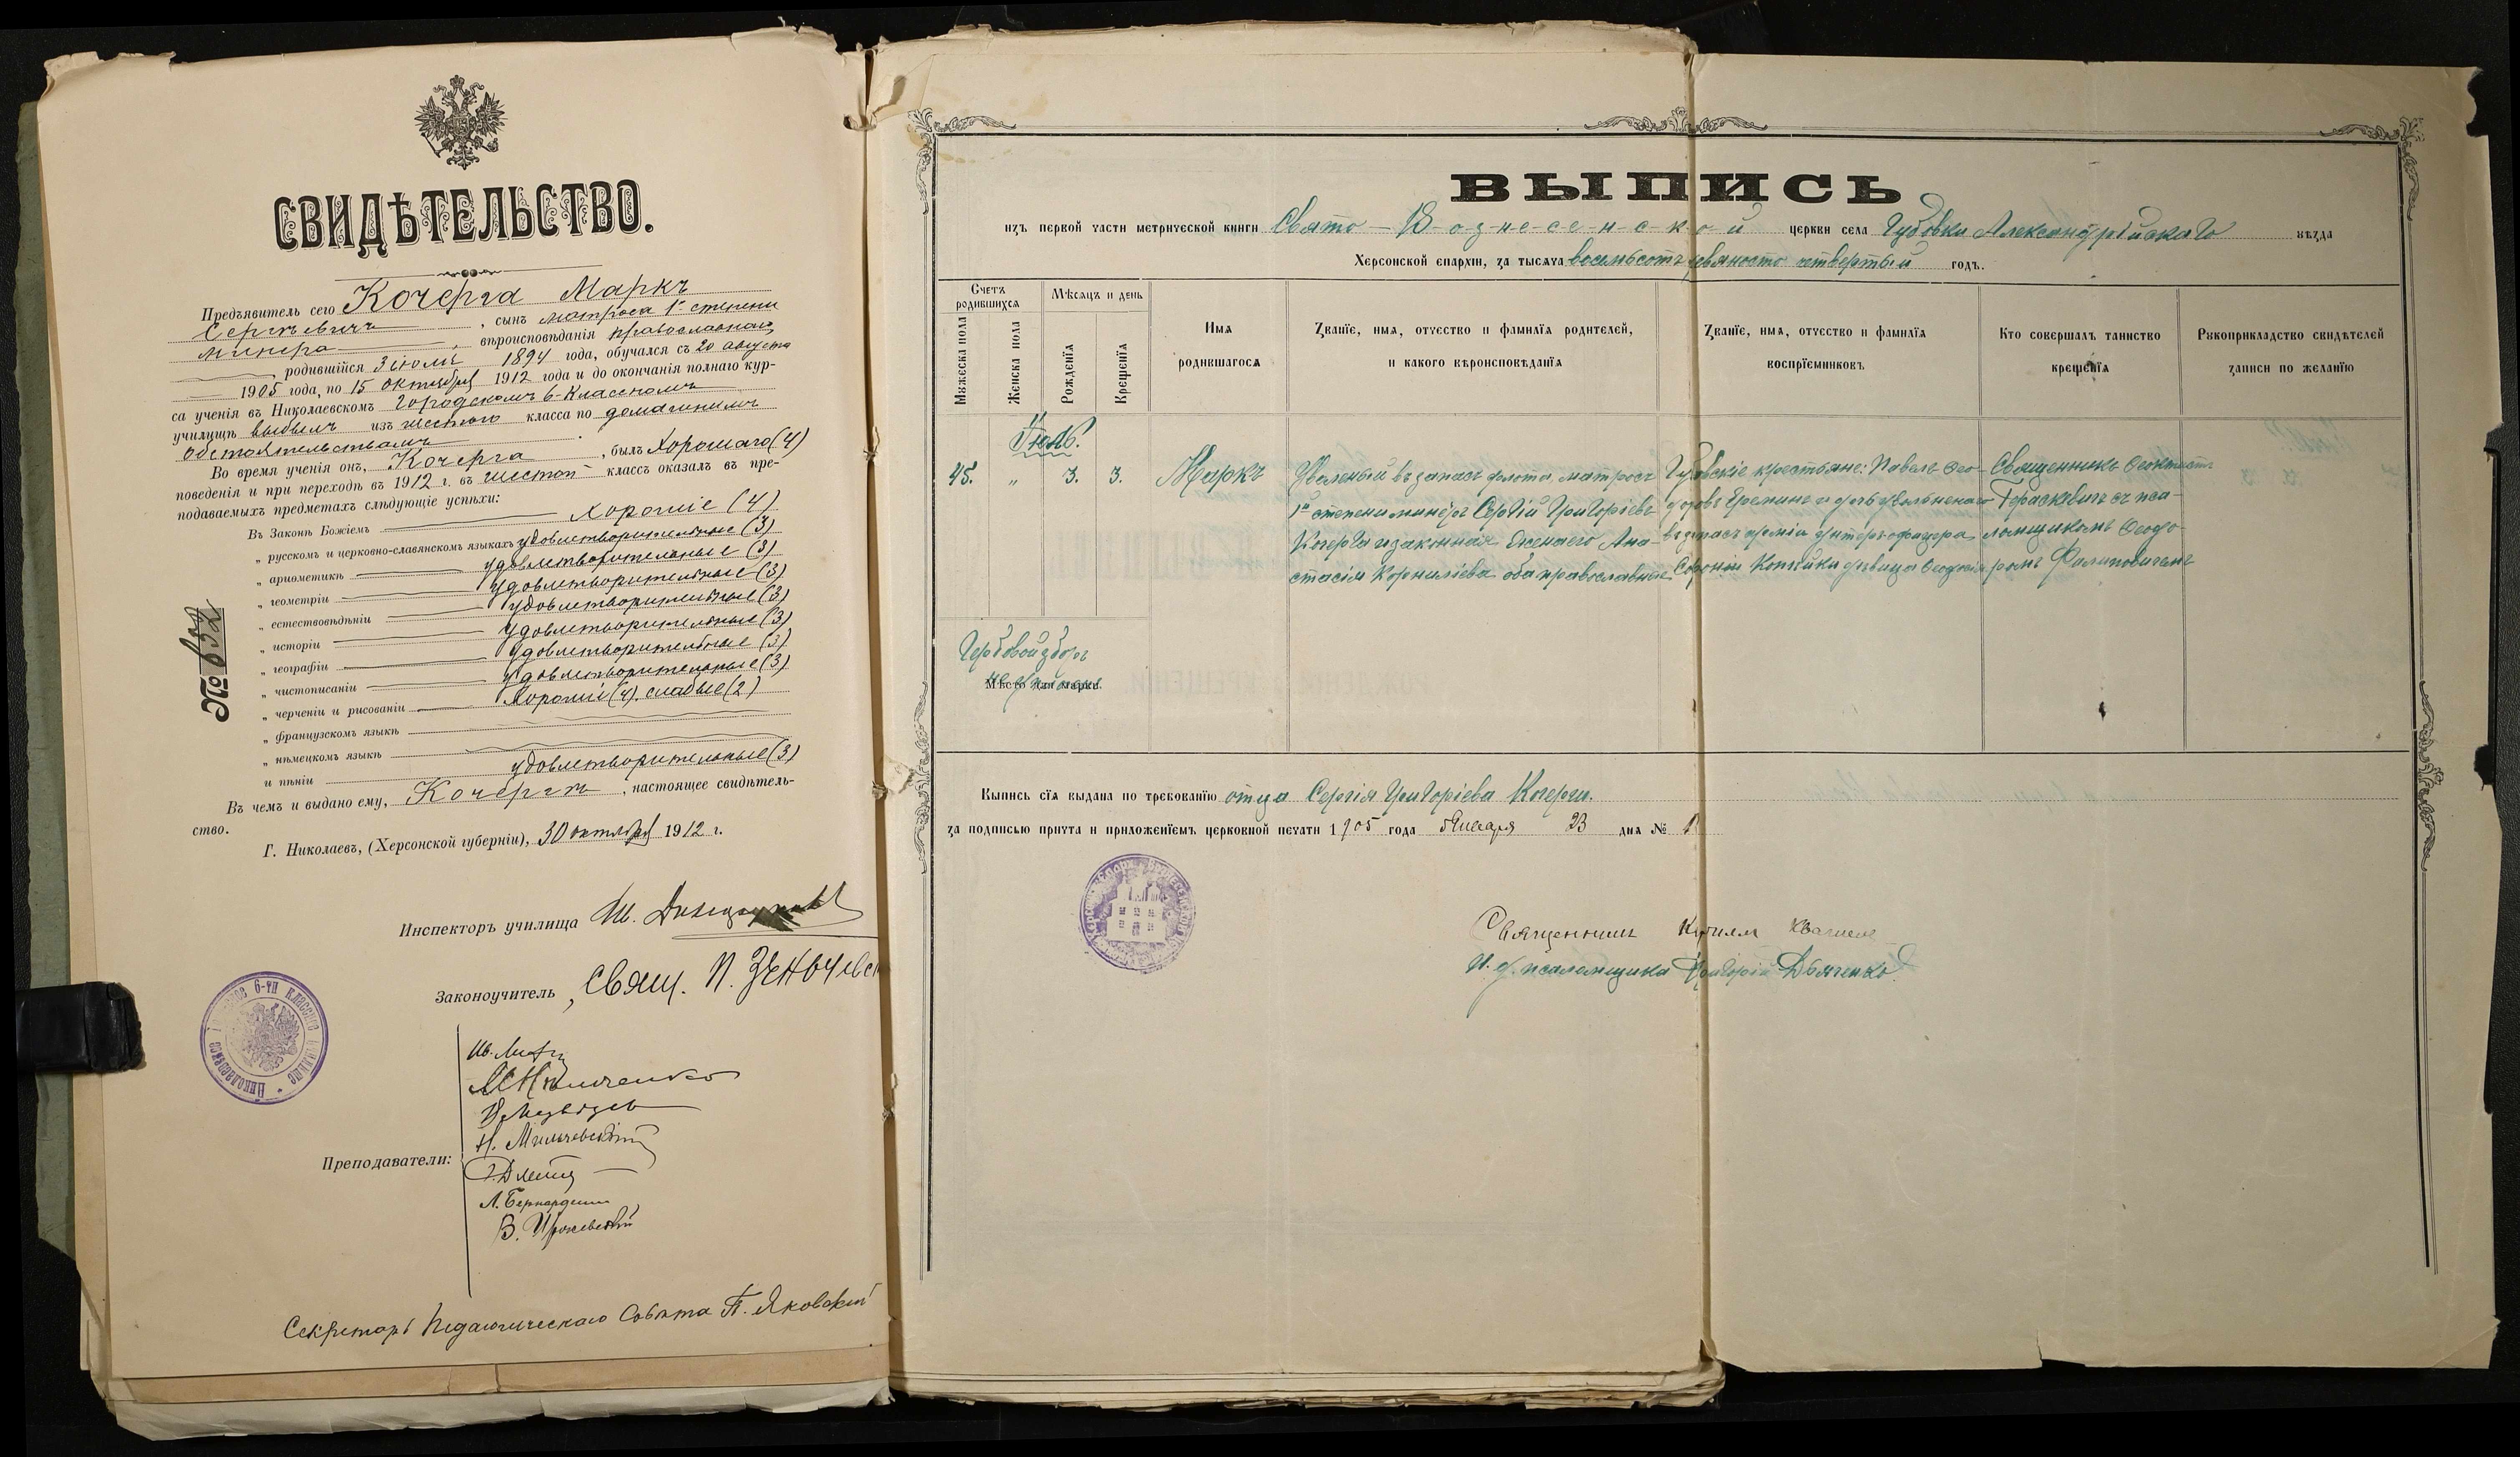 СВИДѢТЕЛЬСТВО.
Предъявитель сего Кочерга Маркъ
Сергѣевичъ, сынъ матроса 1й степени
минера, вѣроисповѣданія православнаго,
родившійся 3 іюля 1894 года, обучался съ 20 августа
1905 года, по 15 октября 1912 года и до окончанія полнаго кур-
са ученія въ Николаевскомъ Городскомъ 6-классномъ
училищѣ выбылъ изъ шестого класса по домашнимъ
обстоятельствамъ.
Во время ученія онъ, Кочерга, былъ хорошаго (4)
поведенія и при переходѣ въ 1912 г. въ шестой классъ оказалъ въ пре-
подаваемыхъ предметахъ слѣдующіе успѣхи:
Въ Законѣ Божіемъ хорошіе (4)
„ русскомъ и церковно-славянскомъ языкахъ удовлетворительные (3)
„ ариѳметикѣ удовлетворительные (3)
„ геометріи удовлетворительные (3)
„ естествовѣдѣніи удовлетворительные (3)
„ исторіи удовлетворительные (3)
„ географіи удовлетворительные (3)
„ чистописаніи удовлетворительные (3)
„ черченіи и рисованіи хорошіе (4), слабые (2)
„ французскомъ языкѣ
„ нѣмецкомъ языкѣ
и пѣніи удовлетворительные (3)
Въ чемъ и выдано ему, Кочергѣ, настоящее свидѣтель-
ство.
Г. Николаевъ, (Херсонской губерніи), 30 октября 1912 г.
№ 652
Инспекторъ училища
Законоучитель, Свящ. П.
Преподаватели:
Н. Мильчевскій
Л. Бернардини
В.
Секретарь Педагогическаго Совѣта П. Яковскій
Николаевское 6-ти классное училище
ВЫПИСЬ
изъ первой части метрической книги Свято-Вознесенской церкви села Губовки Александрійскаго уѣзда
Херсонской епархіи, за тысяча восемьсотъ девяносто четвертый годъ.
Счетъ родившихся
Мѣсяцъ и день
Мужеска пола
Женска пола
Рожденїя
Крещенїя
Имя родившагося
Званїе, имя, отчество и фамилїя родителей, и какого вѣроисповѣданїя
Званїе, имя, отчество и фамилїя воспрїемниковъ
Кто совершалъ таинство крещенїя
Рукоприкладство свидѣтелей записи по желанїю
Іюль.
45. „ 3. 3. Маркъ
Уволеный въ запасъ флота, матросъ
1й степени минеръ Сергій Григоріевъ
Кочерга и законная жена его Ана-
стасія Корниліева оба православные
Губовскіе крестьяне: Павелъ Ѳео-
доровъ Еремин и дочь уволненаго
въ запасъ арміи унтеръ-офицера
Софроній Копійки дѣвица Ѳеодосія
Священникъ Ѳеоктистъ
Гераскевичъ съ пса-
ломщикомъ Ѳеодо-
ромъ Филиповичемъ
Гербовой зборъ
Мѣсто для марки.
Выпись сїя выдана по требованїю отца Сергія Григоріева Кочерги.
за подписью причта и приложенїемъ церковной печати 1905 года Января 23 дня №
Священникъ
И. д. псаломщика Григорій Дьяченко